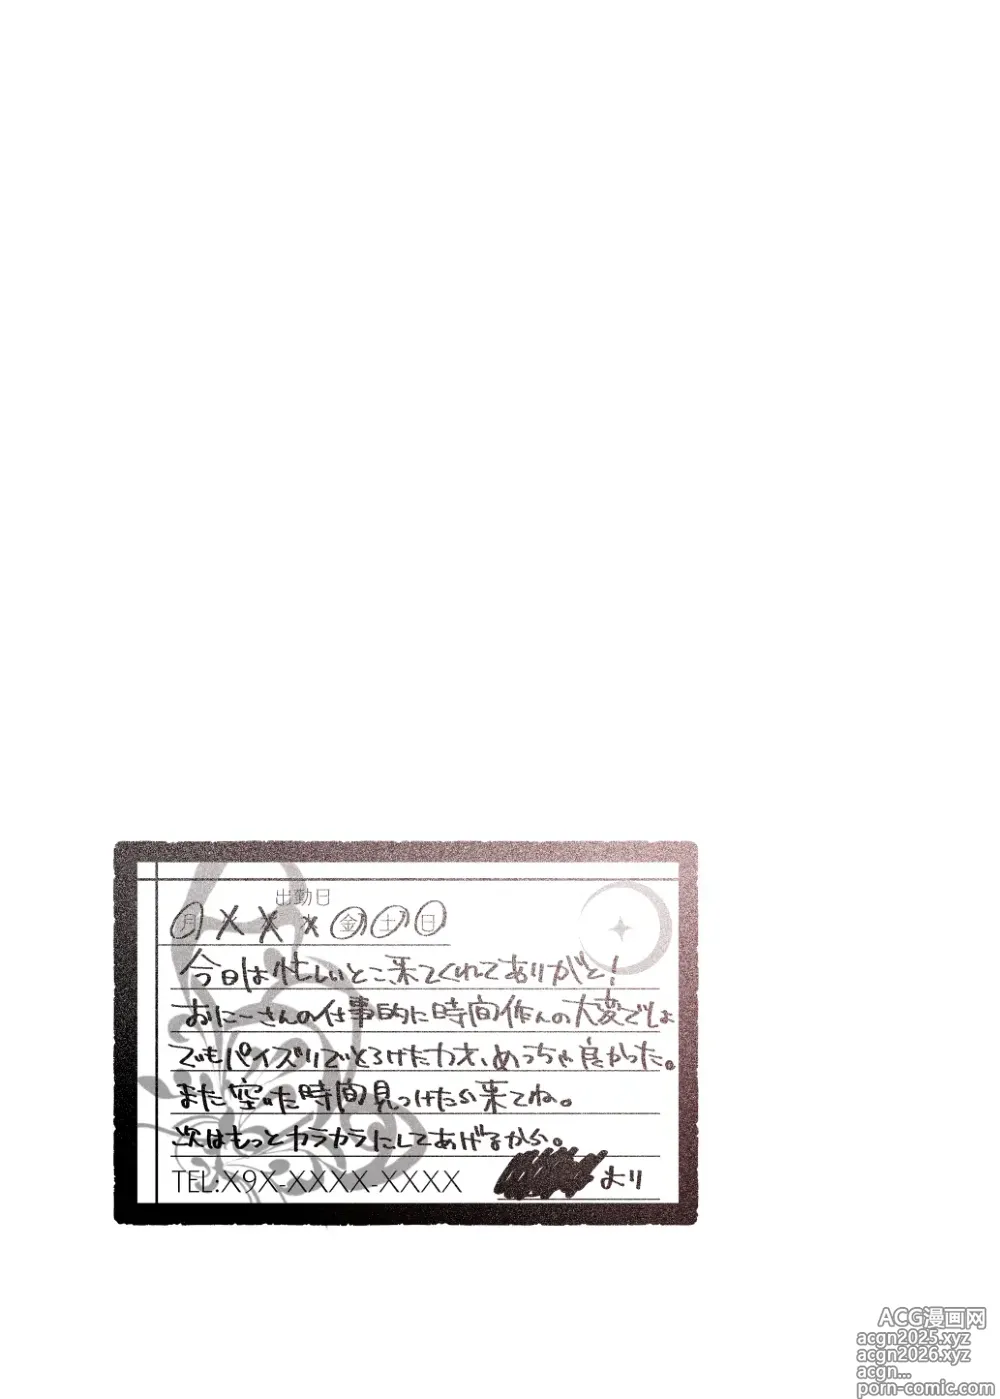 出勤日
月 X X X 金 土 日
今日は忙しいとこ来てくれてありがと!
おにーさんの仕事的に時間作んの大変でしょ
でもパイズリでとろけたカオ、めっちゃ良かった。
また空いた時間見つけたら来てね。
次はもっとカラカラにしてあげるから。
TEL:X9X-XXXX-XXXX
より
ACG漫画网
acgn2025.xyz
acgn2026.xyz
acgn...
porn-comic.com